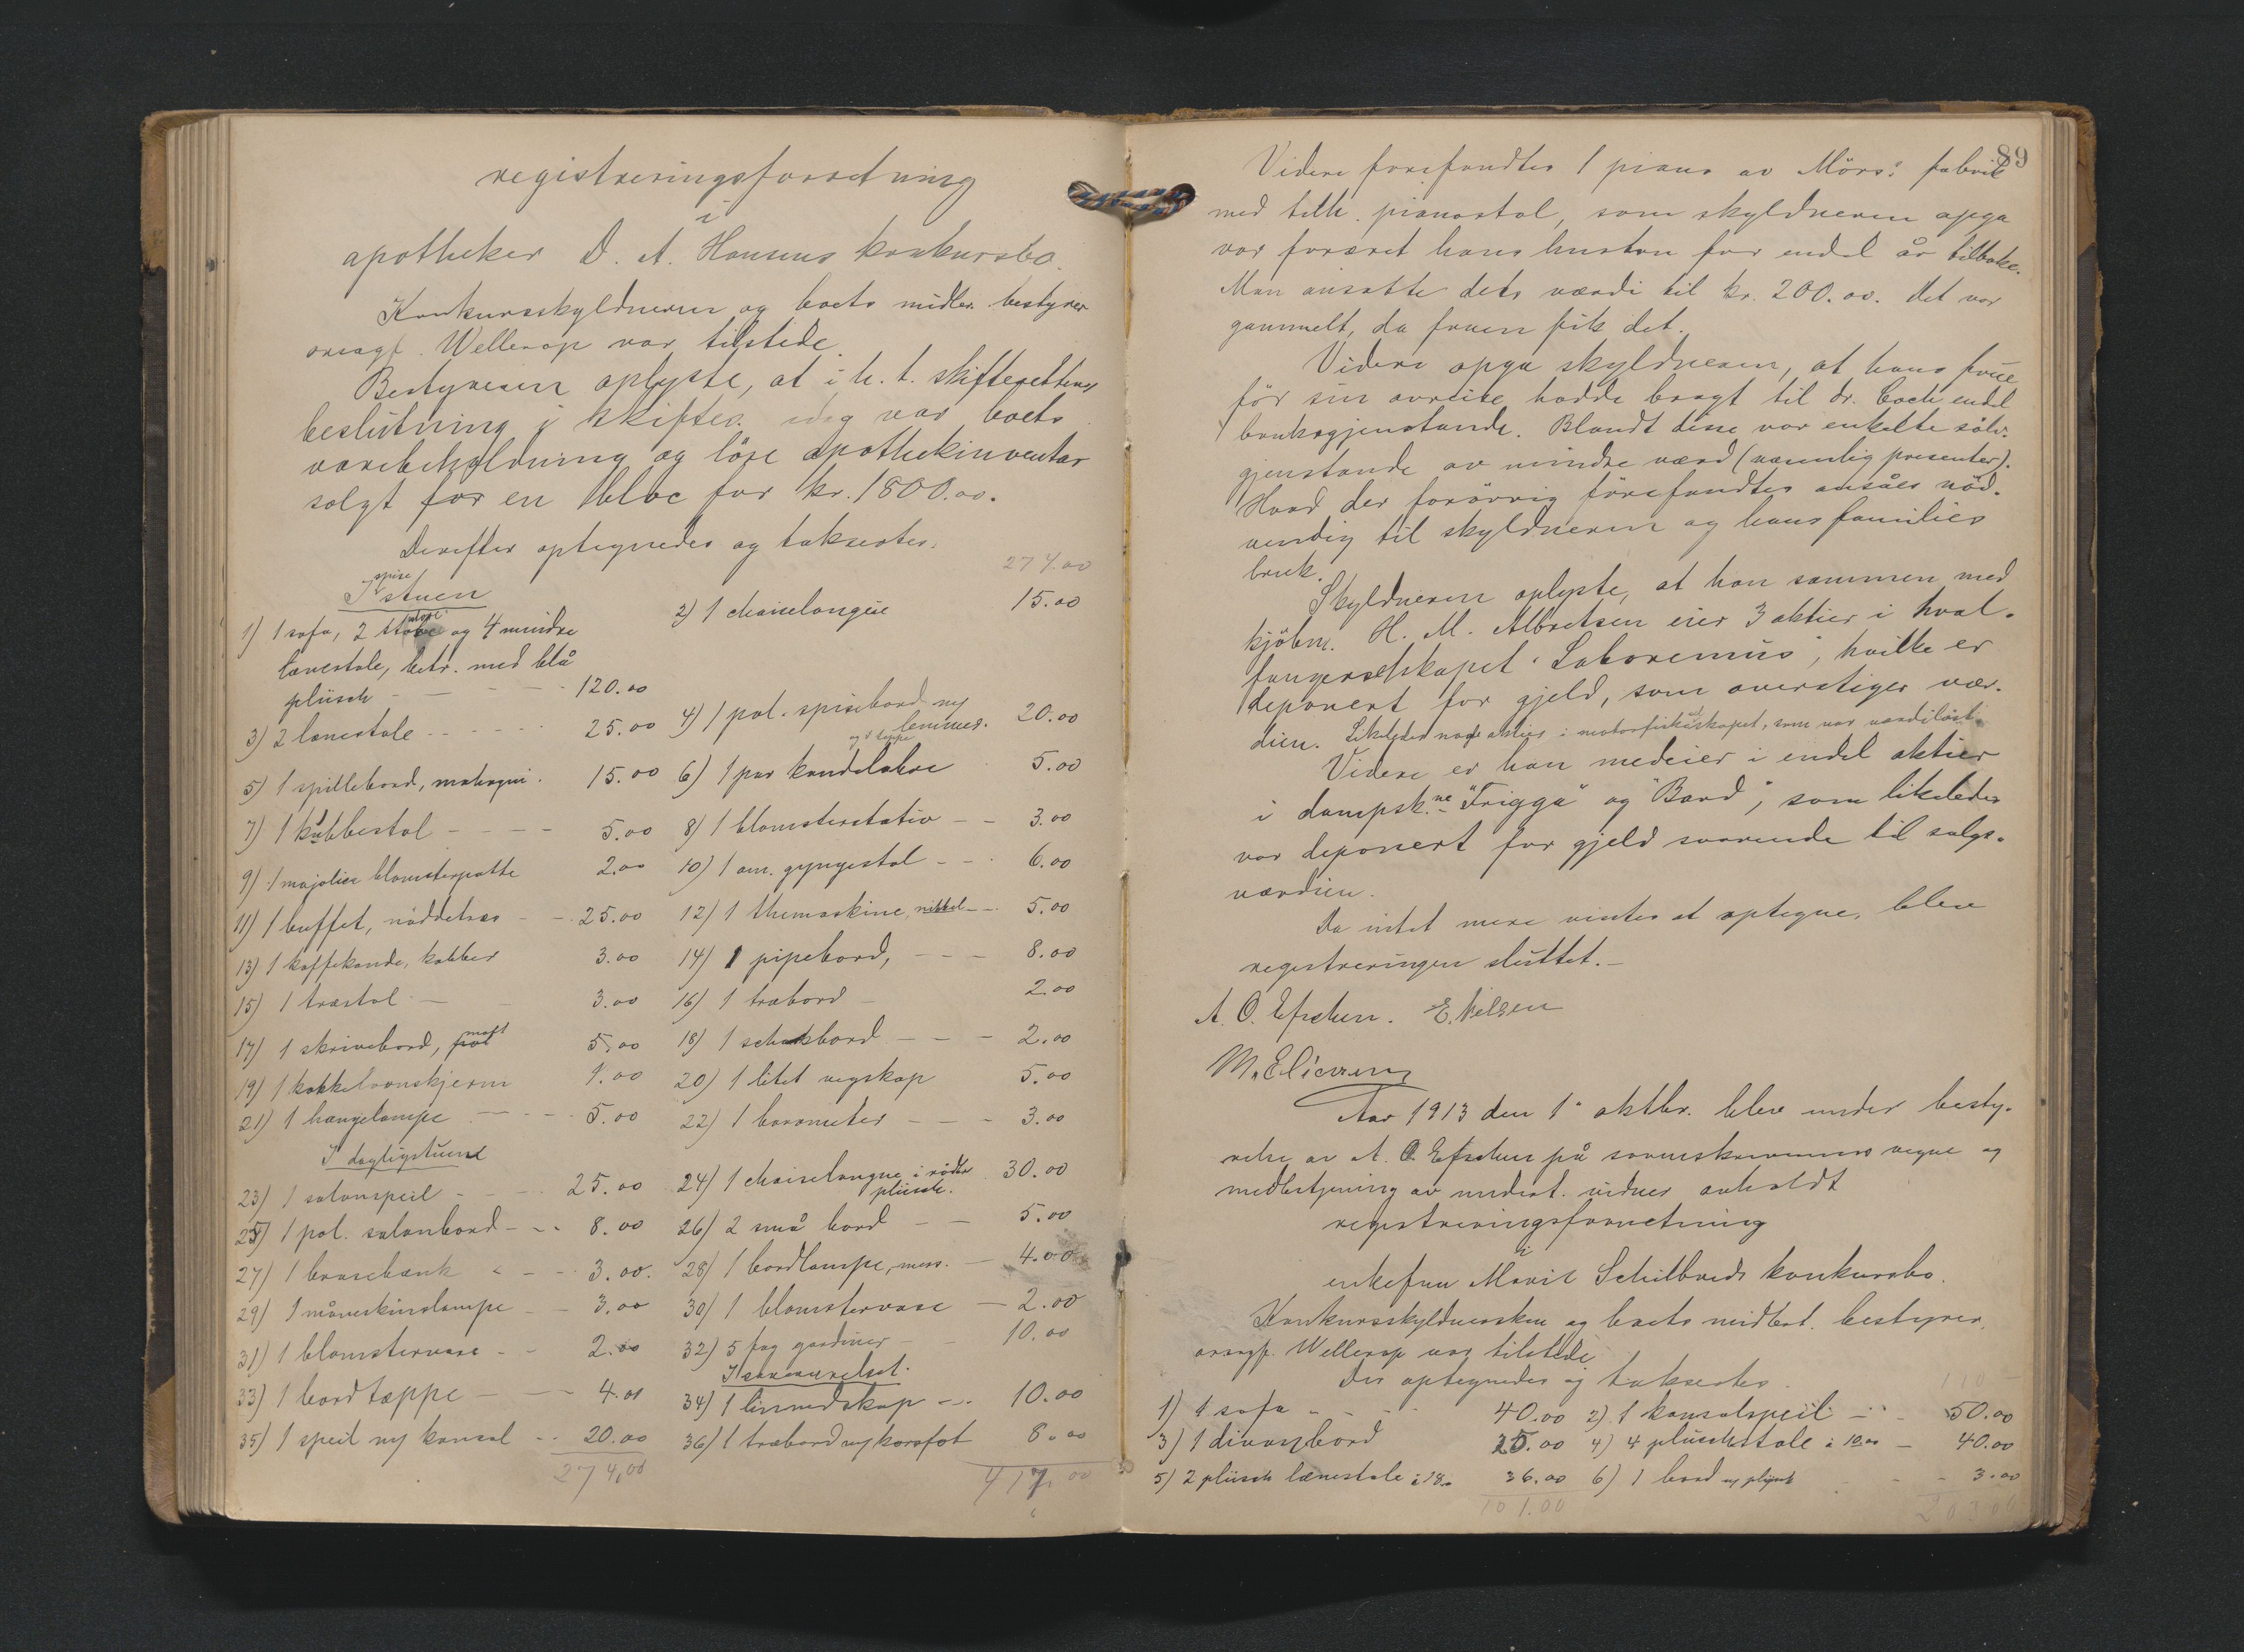 registreringsforretning
i
apotheker D. A. Hansens konkursbo.
Konkursskyldneren og boets midler. bestyrer
orsagf. Wellerop var tilstede.
Bestyreren oplyste, at i h. t. skifterettens
beslutning i skifter. idag var boets
varebeholdning og löse apothekinventar
solgt for en bloc for kr. 1800.00.
Derefter optegnedes og taksertes.
274.00
I spise stuen
1) 1 sofa, 2 store og 4 mindre
lænestole, betr. med blå
plüsch - 120.00
2) 1 chaiselongue 15.00
3) 2 lænestole 25.00
4) 1 pol. spisebord m/ lemmer. og 1 teppe 20.00
5) 1 spillebord, mahogni. 15.00
6) 1 par kandelabre 5.00
7) 1 kubbestol 5.00
8) 1 blomsterstativ 3.00
9) 1 majolica blomsterpotte 2.00
10) 1 am. gyngestol 6.00
11) 1 buffet, nöddetræ 25.00
12) 1 themaskine, nikkel 5.00
13) 1 kaffekande, kobber 3.00
14) 1 pipebord, 8.00
15) 1 træstol 3.00
16) 1 træbord 2.00
17) 1 skrivebord, 5.00
18) 1 schakbord 2.00
19) 1 kakkelovnskjerm 1.00
20) 1 litet vegskap 5.00
21) 1 hængelampe 5.00
22) 1 barometer 3.00
I dagligstuene
23) 1 salonspeil 25.00
24) 1 chaiselongue i rödt plüsch. 30.00
25) 1 pol. salonbord 8.00
26) 2 små bord 5.00
27) 1 brusebænk 3.00.
28) 1 bordlampe, mess. 4.00
29) 1 måneskinslampe 3.00
30) 1 blomstervase 2.00
31) 1 blomstervase 2.00
32) 5 fag gardiner 10.00
33) 1 bordtæppe 4.00
I soveværelset.
34) 1 linnedskap 10.00
35) 1 speil m/ konsol 20.00
36) 1 træbord m/ korsfot 8.00
274,00
417.00
89
Videre forefandtes 1 piano av Mörs: fabrik
med tilh. pianostol, som skyldneren opga
var foræret hans hustru for endel år tilbake.
Man ansatte dets værdi til kr. 200.00. Det var
gammelt, da fruen fik det.
Videre opga skyldneren, at hans frue
för sin avreise hadde bragt til dr. Coch endel
bruksgjenstande. Blandt disse var enkelte sölv-
gjenstande av mindre værd (væsentlig presenter).
Hvad der forövrig forefandtes ansåes nöd-
vendig til skyldneren og hans families
bruk.
Skyldneren oplyste, at han sammen med
kjöbm. H. M. Albretsen eier 3 aktier i hval-
fangerselskapet "Laboremus", hvilke er
deponert for gjeld, som overstiger vær-
dien. Likeledes nogle aktier i motorfiskeskapet, som var værdilöst.
Videre er han medeier i endel aktier
i dampsk.ne "Frigga" og "Bard", som likeledes
var deponert for gjeld svarende til salgs-
værdien.
Da intet mere vistes at optegne, blev
registreringen sluttet.-
A. O. Efsken. E. Nelsen
Aar 1913 den 1. oktbr. blev under besty-
relse av A. O. Efsken på sorenskriverens vegne og
medbetjening av undert. vidner avholdt
registreringsforretning
i
enkefru Marie Schilbreds konkursbo.
Konkursskyldnersken og boets midlert. bestyrer,
orsagf. Wellerop var tilstede.
Der optegnedes og taksertes.
110
1) 1 sofa 40.00
2) 1 konsolspeil 50.00
3) 1 divanbord 25.00
4) 4 plüschstole à 10.00 40.00
5) 2 plüsch lænestole à 18.- 36.00
6) 1 bord m/ plysch 3.00
101.00
203.00